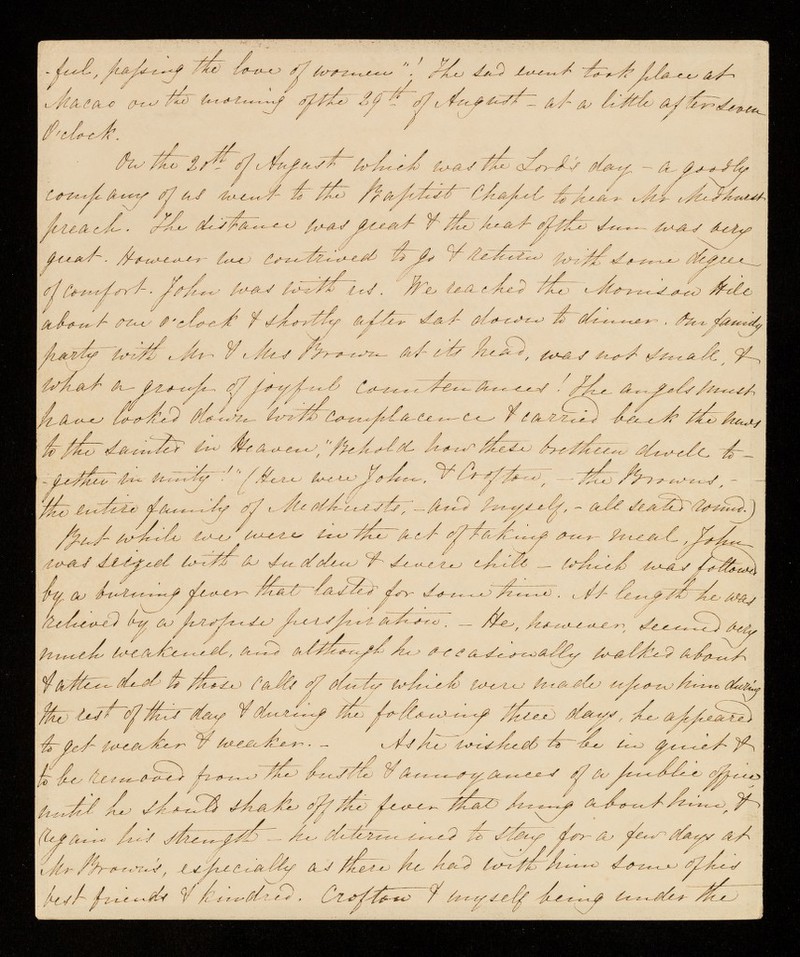 -ful, passing the love of women"! The sad event took place at
Macao on the morning of the 29th of August - at a little after seven
O'clock.
On the 20th of August which was the Lord's day - a goodly
company of us went to the Baptist Chapel to hear Mr Medhurst
preach. The distance was great & the heat of the sun was very
great. However we contrived to go & return with some degree
of comfort. John was with us. We reached the Morrison Hill
about one o'clock & shortly after sat down to dinner. Our family
party with Mr & Mrs Brown at its head, was not small, &
what a group of joyful countenances! The angels must
have looked down with complacence & carried back the news
to the sainted in Heaven, "Behold how these brethren dwell to-
-gether in unity!" (Here were John, & Crofton, - the Browns, -
the entire family of Medhursts, - and myself, - all seated round.)
But while we were in the act of taking our meal, John
was seized with a sudden & severe chill - which was followed
by a burning fever that lasted for some time. At length he was
relieved by a profuse perspiration. - He, however, seemed very
much weakened, and although he occasionally walked about
& attended to those calls of duty which were made upon him during
the rest of this day & during the following three days, he appeared
to get weaker & weaker. - As he wished to be in quiet &
to be removed from the bustle & annoyances of a public office
until he should shake off the fever that hung about him, &
regain his strength - he determined to stay for a few days at
Mr Brown's, especially as there he had with him some of his
best friends & kindred. Crofton & myself being under the